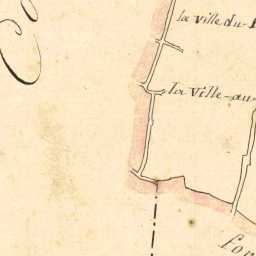 la ville du
la Ville-au-
fon